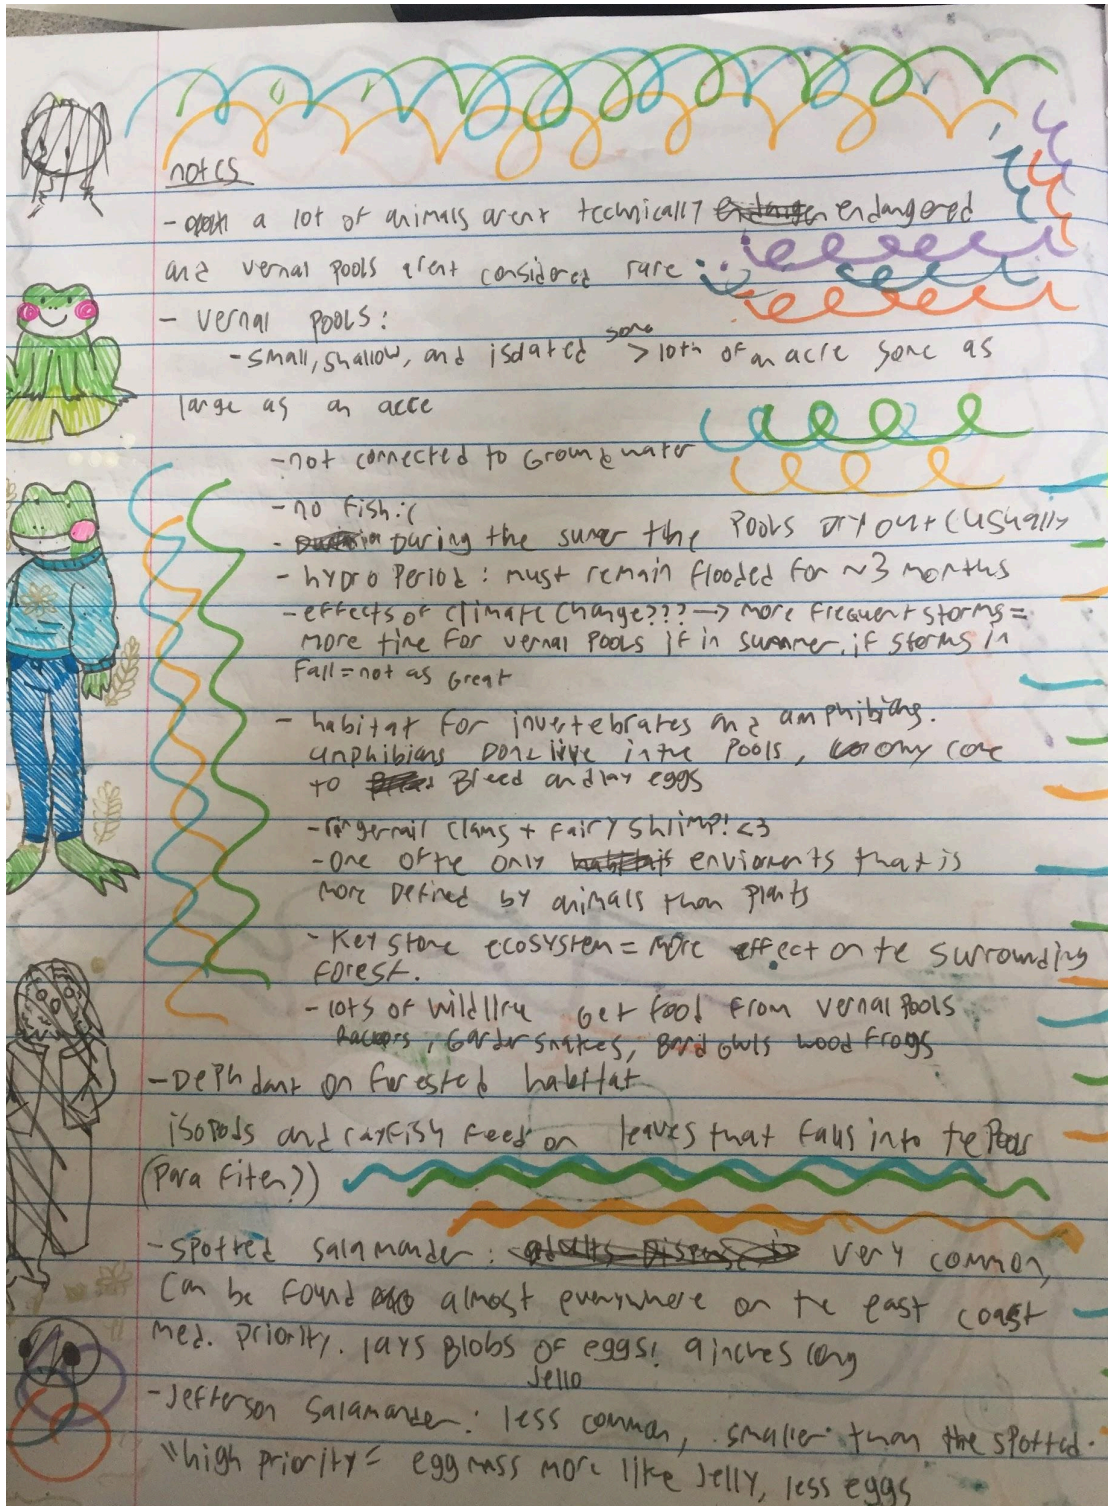 notes
- a lot of animals arent technically endangered
and vernal pools arent considered rare :)
- vernal pools:
- small, shallow, and isolated some > 10th of an acre some as
large as an acre
- not connected to Groundwater
- no fish :(
- During the sumer the pools dry out (usually
- hydro period: must remain flooded for ~3 months
- effects of climate change??? → more frequent storms =
more time for vernal pools if in summer, if storms in
Fall = not as Great
- habitat for invertebrates and amphibians.
amphibians dont live in the pools, only come
to Breed and lay eggs
- fingernail clams + fairy shrimp! <3
- One of the only enviorments that is
more defined by animals than plants
- Keystone ecosystem = more effect on the surrounding
forest.
- lots of wildlife get food from vernal pools
, Garder snakes, Bard owls wood frogs
- Dephdant on forested habitat
isopods and crayfish feed on leaves that falls into the Pools
(Para fiten?))
- spotted salamander: very common,
Can be found almost everywhere on the east coast
med. priority. lays Blobs of eggs! 9 inches long
Jello
- Jefferson salamander: less common, smaller than the spotted.
"high priority" = egg mass more like Jelly, less eggs